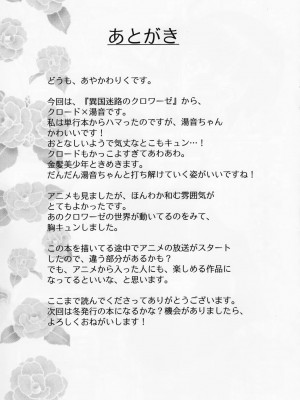 あとがき
どうも、あやかわりくです。
今回は、『異国迷路のクロワーゼ』から、
クロード×湯音です。
私は単行本からハマったのですが、湯音ちゃん
かわいいです！
おとなしいようで気丈なとこもキュン…！
クロードもかっこよすぎてあわあわ。
金髪美少年ときめきます。
だんだん湯音ちゃんと打ち解けていく姿がいいですね！
アニメも見ましたが、ほんわか和む雰囲気が
とてもよかったです。
あのクロワーゼの世界が動いてるのをみて、
胸キュンしました。
この本を描いてる途中でアニメの放送がスタート
したので、違う部分があるかも？
でも、アニメから入った人にも、楽しめる作品に
なってるといいな、と思います。
ここまで読んでくださってありがとうございます。
次回は冬発行の本になるかな？機会がありましたら、
よろしくおねがいします！